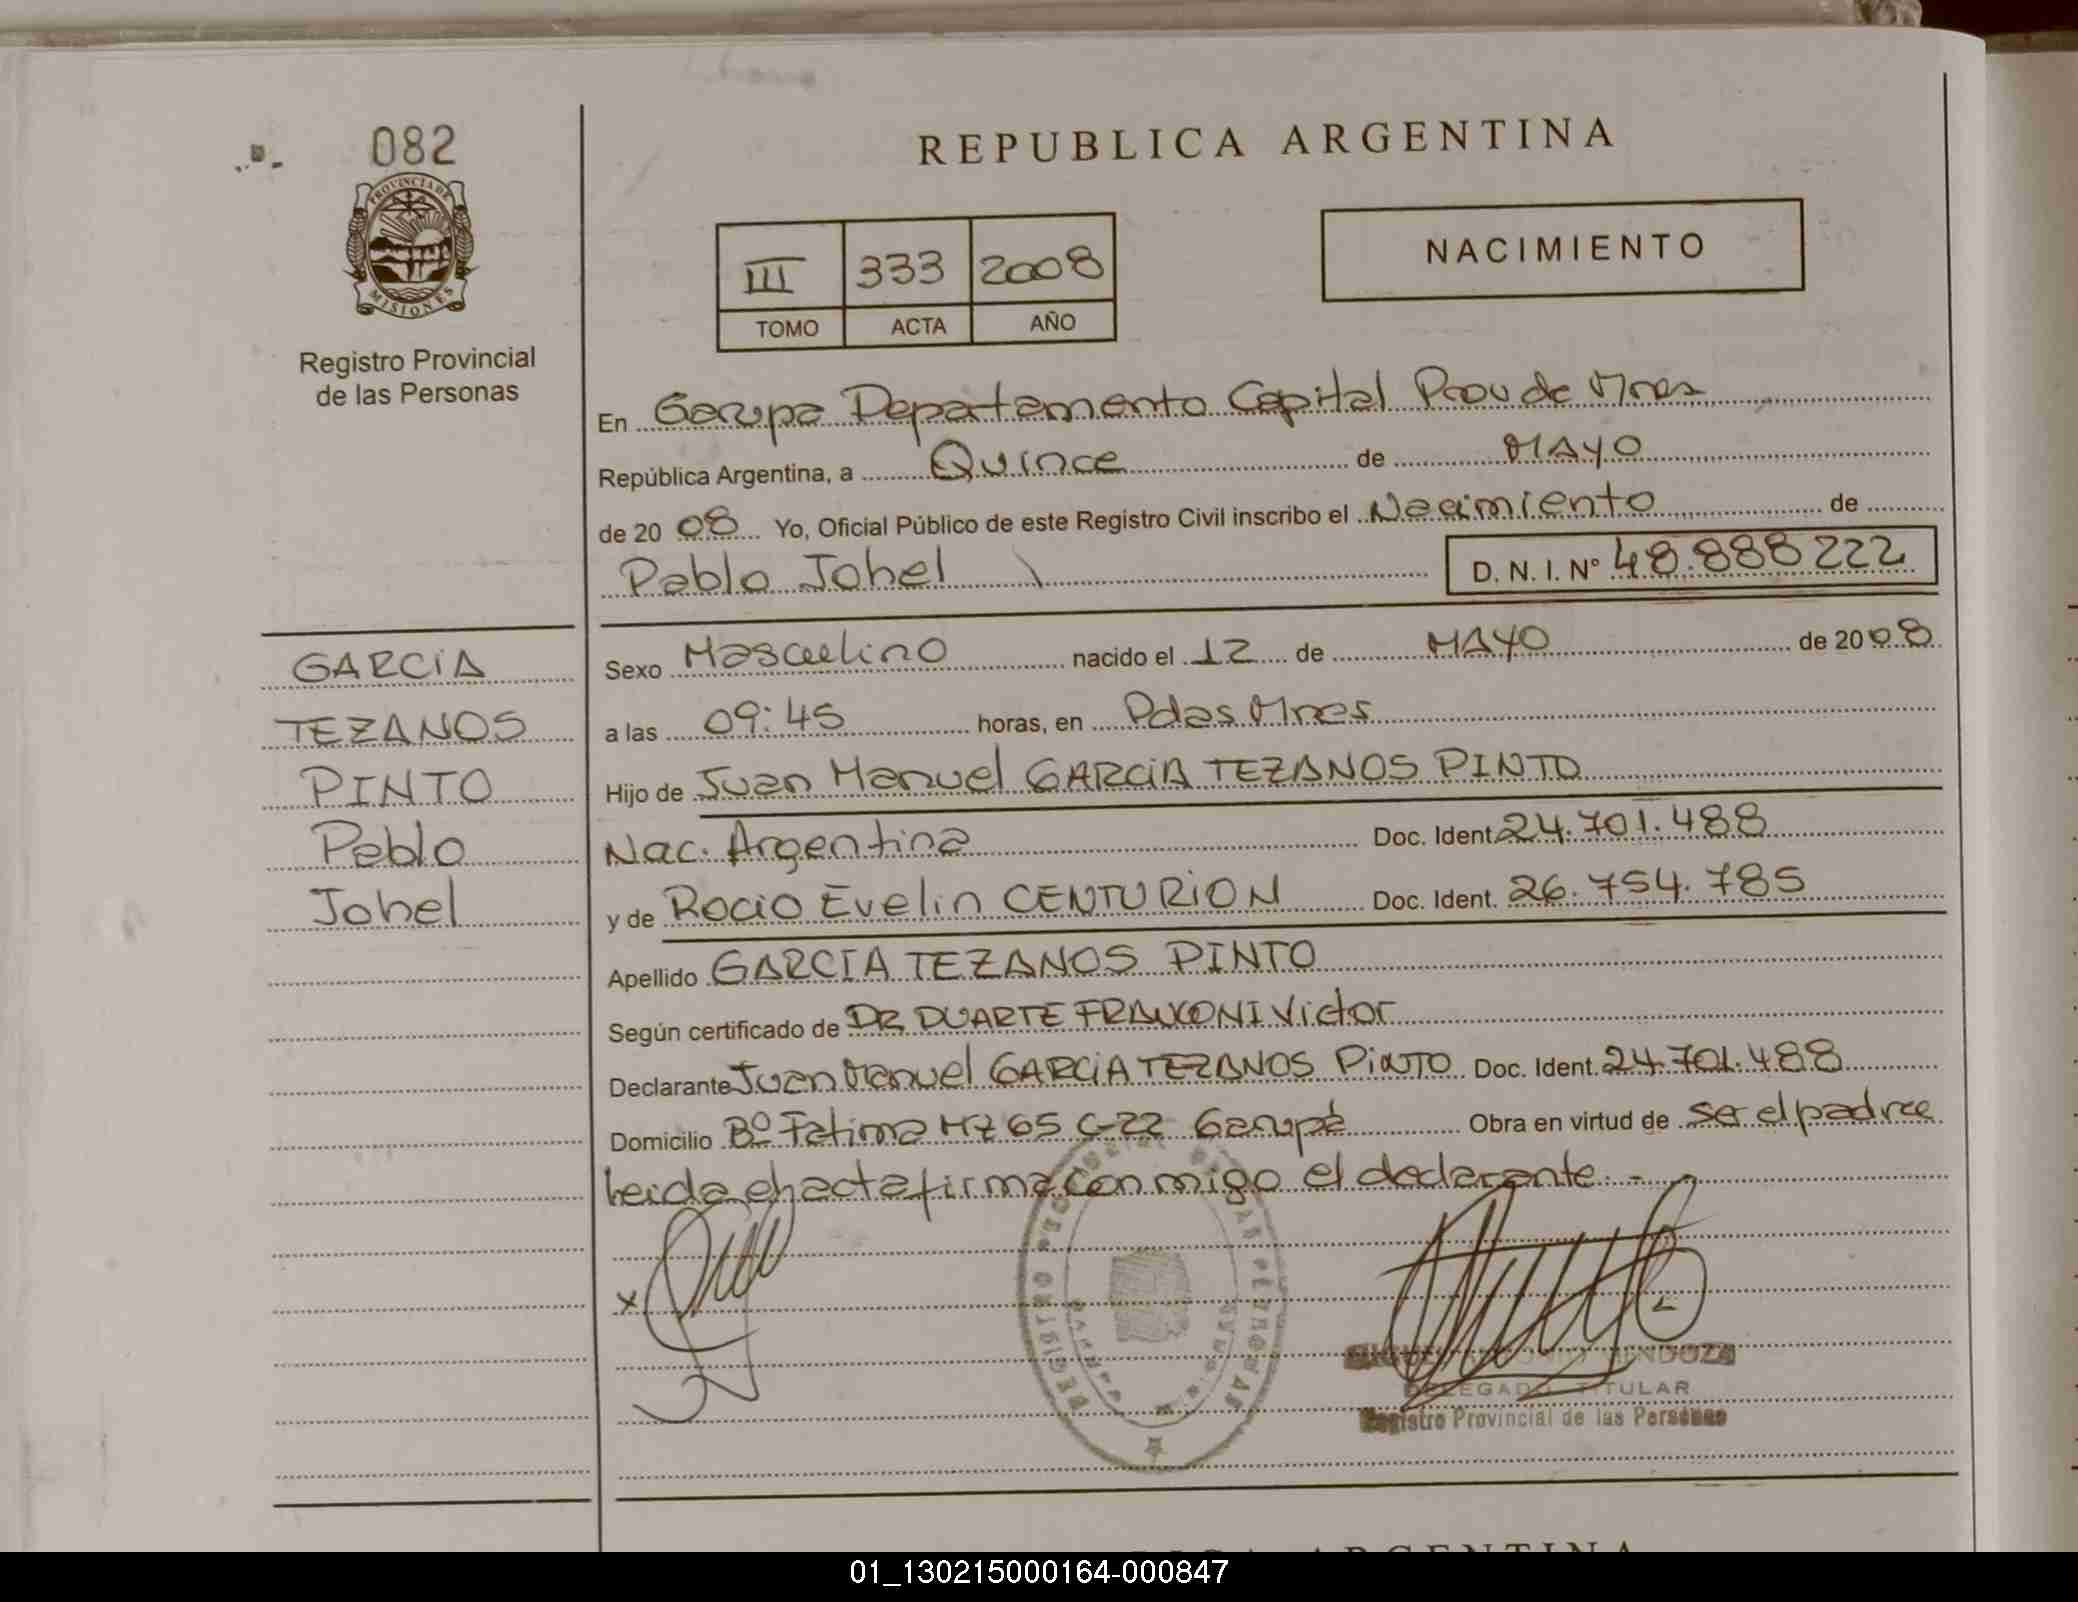 082
PROVINCIA DE
MISIONES
Registro Provincial
de las Personas
REPUBLICA ARGENTINA
III 333 2008
TOMO ACTA AÑO
NACIMIENTO
En Garupa Departamento Capital Prov de Mnes
República Argentina, a Quince de MAYO
de 20 08 Yo, Oficial Público de este Registro Civil inscribo el Nacimiento de
Pablo Johel D. N. I. Nº 48.888222
GARCIA
TEZANOS
PINTO
Pablo
Johel
Sexo Masculino nacido el 12 de MAYO de 2008
a las 09:45 horas, en Pdas Mnes
Hijo de Juan Manuel GARCIA TEZANOS PINTO
Nac. Argentina Doc. Ident. 24.701.488
y de Rocio Evelin CENTURION Doc. Ident. 26.754.785
Apellido GARCIA TEZANOS PINTO
Según certificado de DR DUARTE Victor
Declarante Juan Manuel GARCIA TEZANOS PINTO Doc. Ident. 24.701.488
Domicilio Bº Fatima MZ 65 C-22 Garupá Obra en virtud de ser el padre
Leida el acta firma con migo el declarante.-
x
MENDOZA
DELEGADO TITULAR
Registro Provincial de las Personas
01_130215000164-000847